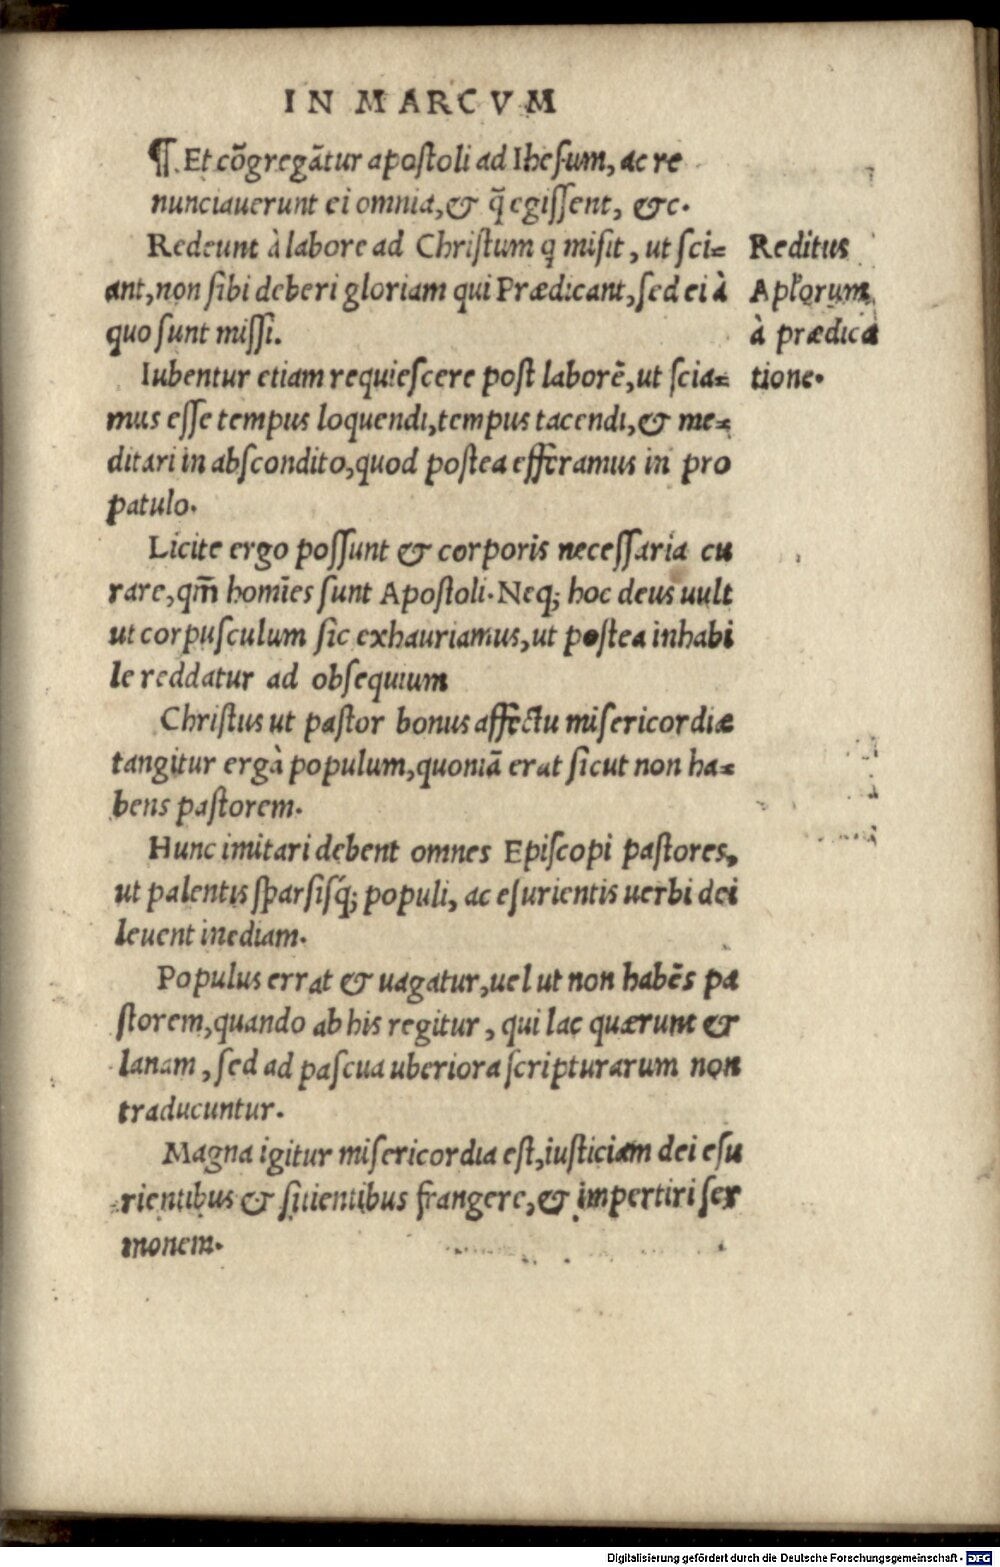 IN MARCVM
¶ Et cõgregãtur apostoli ad Ihesum, ac re
nunciauerunt ei omnia, & q̃ egissent, &c.
Redeunt à labore ad Christum q misit, ut sci=
ant, non sibi deberi gloriam qui Prædicant, sed ei à
quo sunt missi.
Reditus
Apl'orum
à prædica
tione.
Iubentur etiam requiescere post laborẽ, ut scia=
mus esse tempus loquendi, tempus tacendi, & me=
ditari in abscondito, quod postea efferamus in pro
patulo.
Licite ergo possunt & corporis necessaria cu
rare, qm̃ homĩes sunt Apostoli. Neq; hoc deus uult
ut corpusculum sic exhauriamus, ut postea inhabi
le reddatur ad obsequium
Christus ut pastor bonus affectu misericordiæ
tangitur ergà populum, quoniã erat sicut non ha=
bens pastorem.
Hunc imitari debent omnes Episcopi pastores,
ut palentis sparsisq́; populi, ac esurientis uerbi dei
leuent inediam.
Populus errat & uagatur, uel ut non habẽs pa
storem, quando ab his regitur, qui lac quærunt &
lanam, sed ad pascua uberiora scripturarum non
traducuntur.
Magna igitur misericordia est, iusticiam dei esu
rientibus & sitientibus frangere, & impertiri ser
monem.
Digitalisierung gefördert durch die Deutsche Forschungsgemeinschaft - DFG